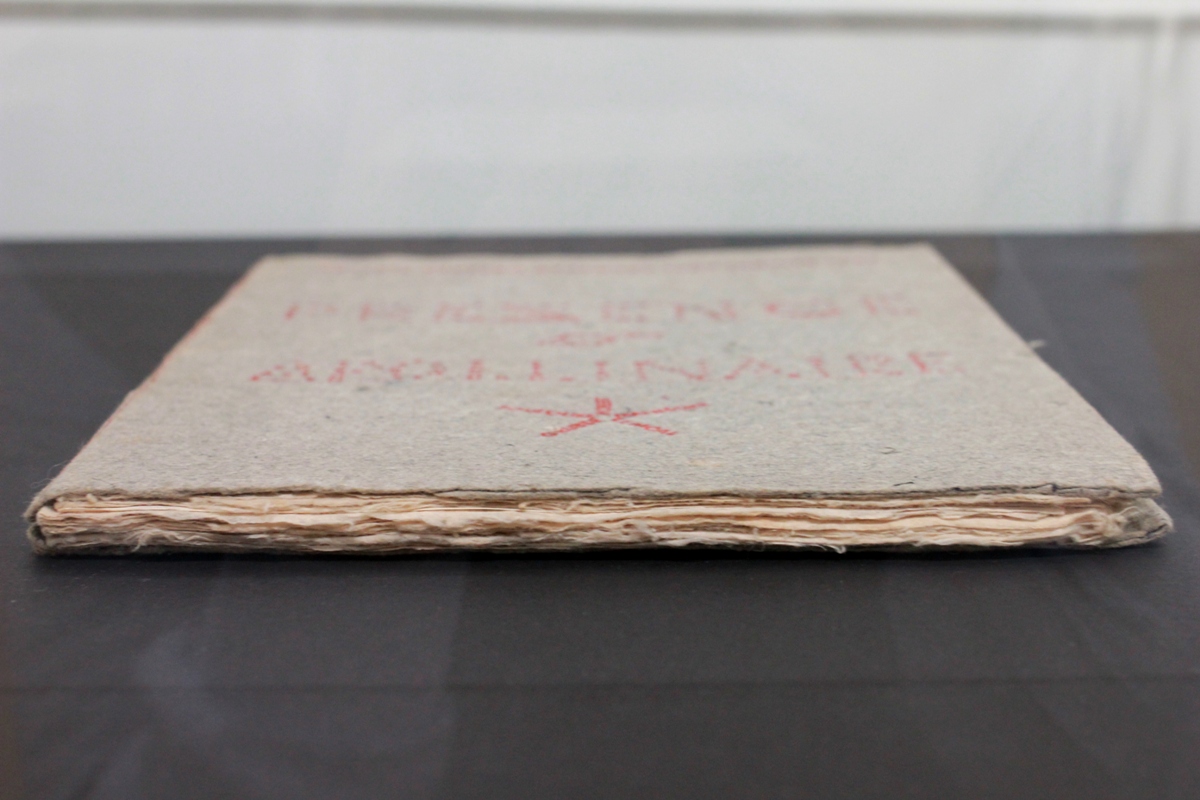 PRESENCE
APOLLINAIRE